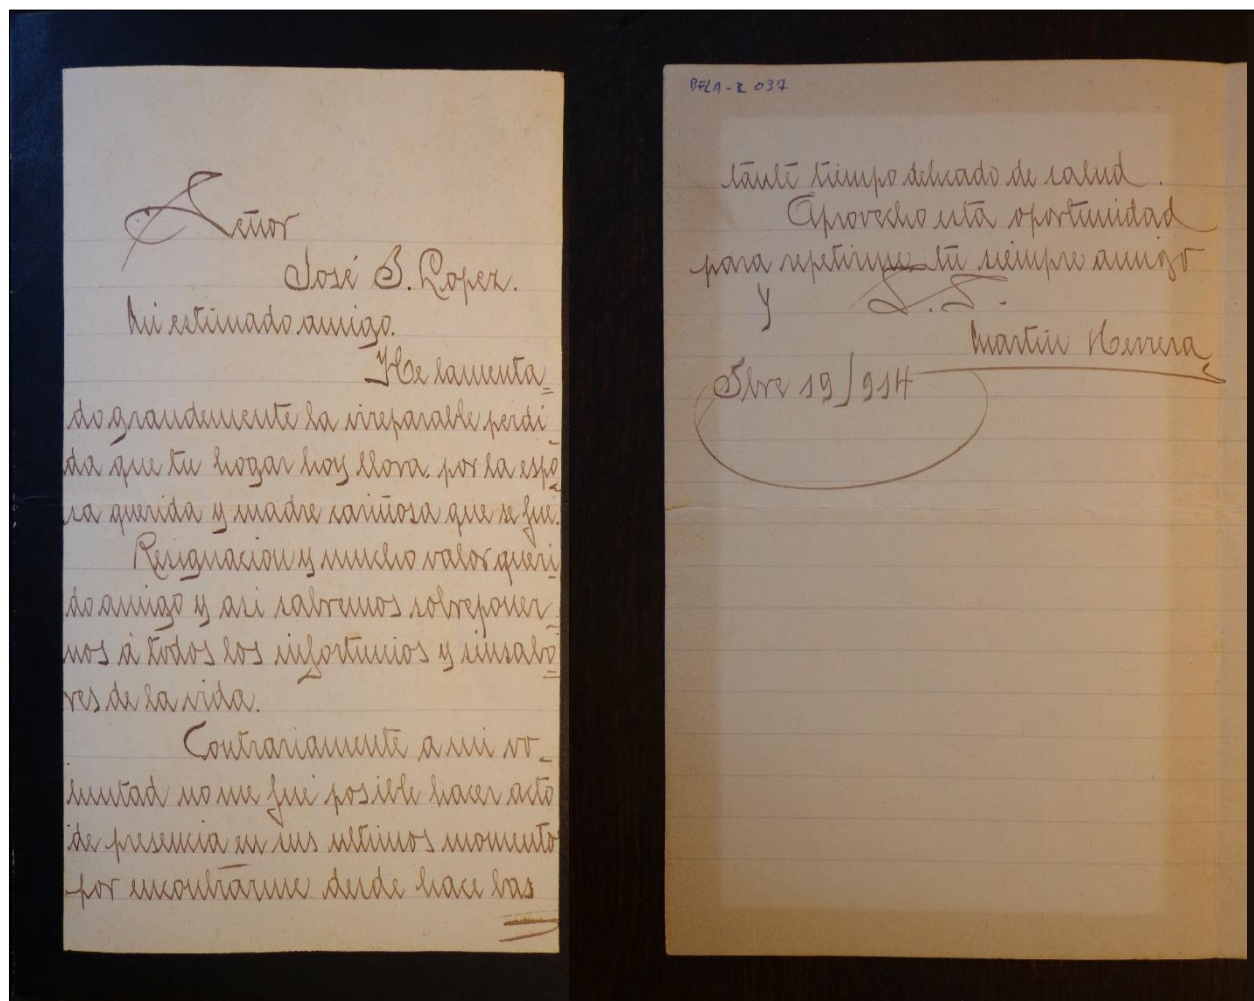 Señor
José S. Lopez.
Mi estimado amigo.
He lamenta=
do grandemente la irreparable perdi-
da que tu hogar hoy llora por la espo-
sa querida y madre cariñosa que se fué.
Resignacion y mucho valor queri-
do amigo y asi sabremos sobreponer-
nos á todos los infortunios y sinsabo-
res de la vida.
Contrariamente a mi vo-
luntad no me fué posible hacer acto
de presencia en sus ultimos momento
por encontrarme desde hace bas
=
BFLA-R 037
tante tiempo delicado de salud.
Aprovecho esta oportunidad
para repetirme tu siempre amigo
y S. S.
Martin Herrera
Sbre 19/914